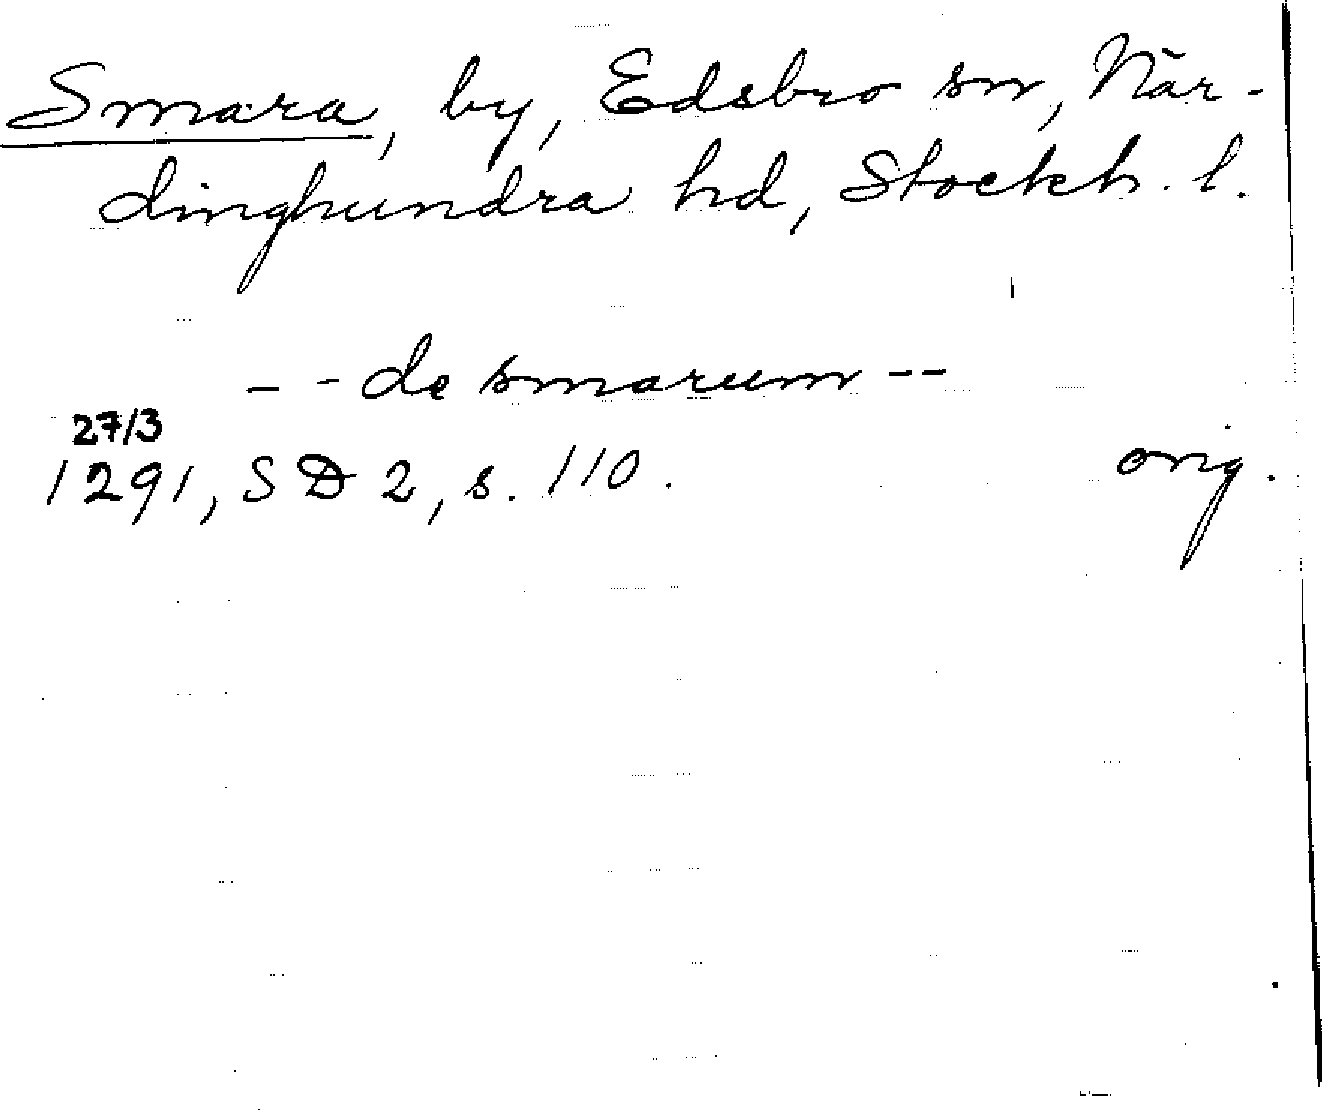 Smara, by, Edsbro sn, När-
dinghundra hd, Stockh. l.
- - de smarum - -
27/3
1291, SD 2, s. 110. orig.